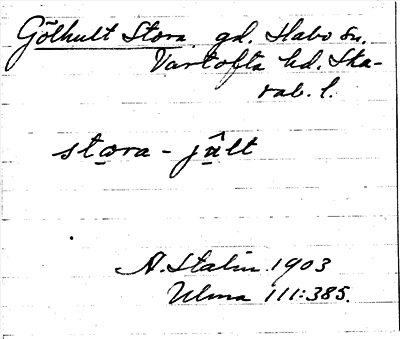 Gölhult Stora gd. Habo sn.
Vartofta hd. Ska-
rab. l.
stora - jûlt
A. Stalin 1903
Ulma 111:385.